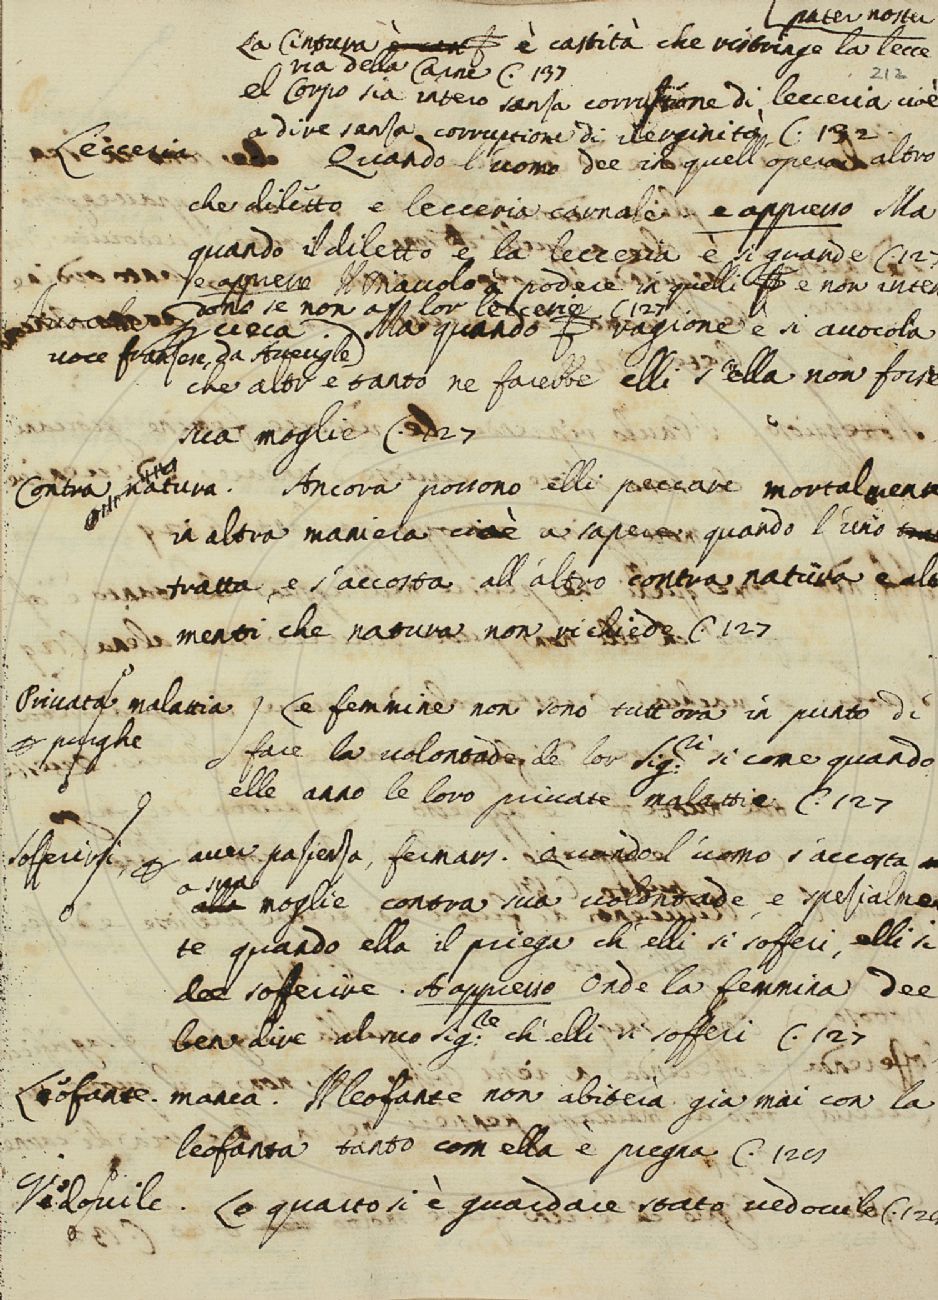 pater noster
La Cintura è cast è castità che ristringe la lecce
ria della Carne C. 137
212
el Corpo sia intero sansa corruttione di lecceria cioè
a dire sansa corruptione di verginità C. 132
Lesseria Quando l'uomo dee in quell'opera altro
che diletto e lecceria carnale e appresso Ma
quando il diletto e la lecceria è sì grande C. 127
e appresso Il Diavolo à podere in quelli e non inten
dono se non a lor leccerie C. 127
cieca. Ma quando ragione è si avocola
voce fransese, da Aveugle
che altr e tanto ne farebbe elli s'ella non fosse
sua moglie C. 127
Contra natura. Ancora possono elli peccare mortalmente
in altra maniera cioè a sapere quando l'uno
tratta, e s'accosta all'altro contra natura e altri
menti che natura non richiede C. 127
Privata malattia Le femmine non sono tuttora in punto di
purghe fare la volontade de lor Sig.ri si come quando
elle anno le loro private malattie C. 127
Sofferirsi, aver pasiensa, fermars. Quando l'uomo s'accosta
a sua
alla moglie contra sua volontade, e spesialmen
te quando ella il priega ch'elli si sofferi, elli si
dee sofferire. Appresso Onde la femmina dee
ben dire al suo sig.re ch'elli si sofferi C. 127
Leofante. manca. Il leofante non abiterà già mai con la
leofanta tanto com ella è pregna C. 129
Vedovile. Lo quarto si è guardare stato vedovile C. 129